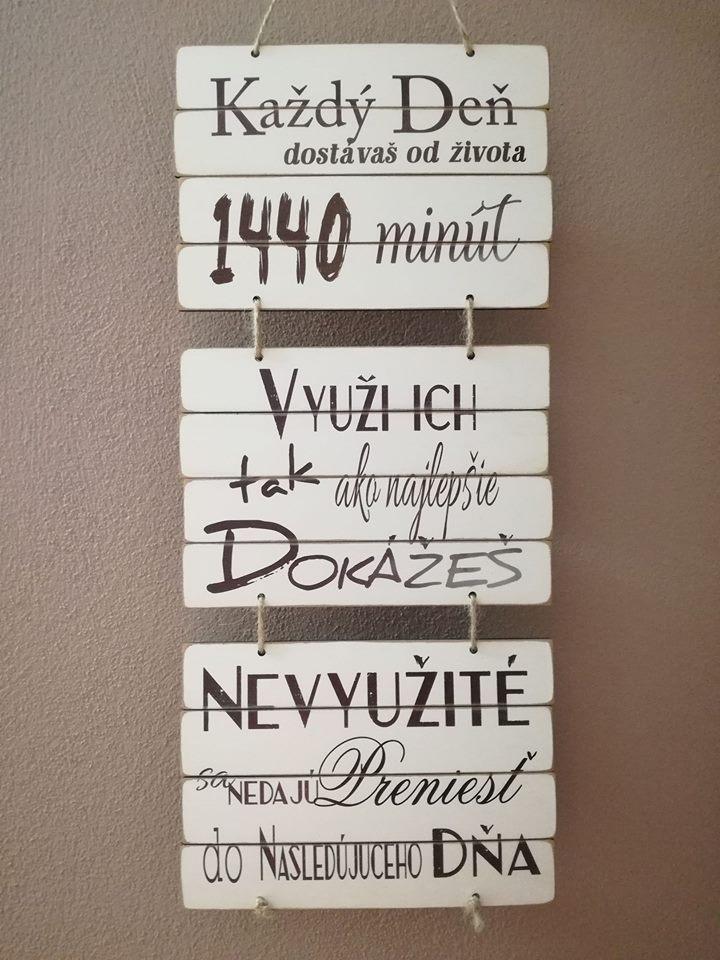 Každý Deň
dostávaš od života
1440 minút
Využi ich
tak ako najlepšie
Dokážeš
Nevyužité
sa nedajú Preniesť
do Nasledújuceho Dňa